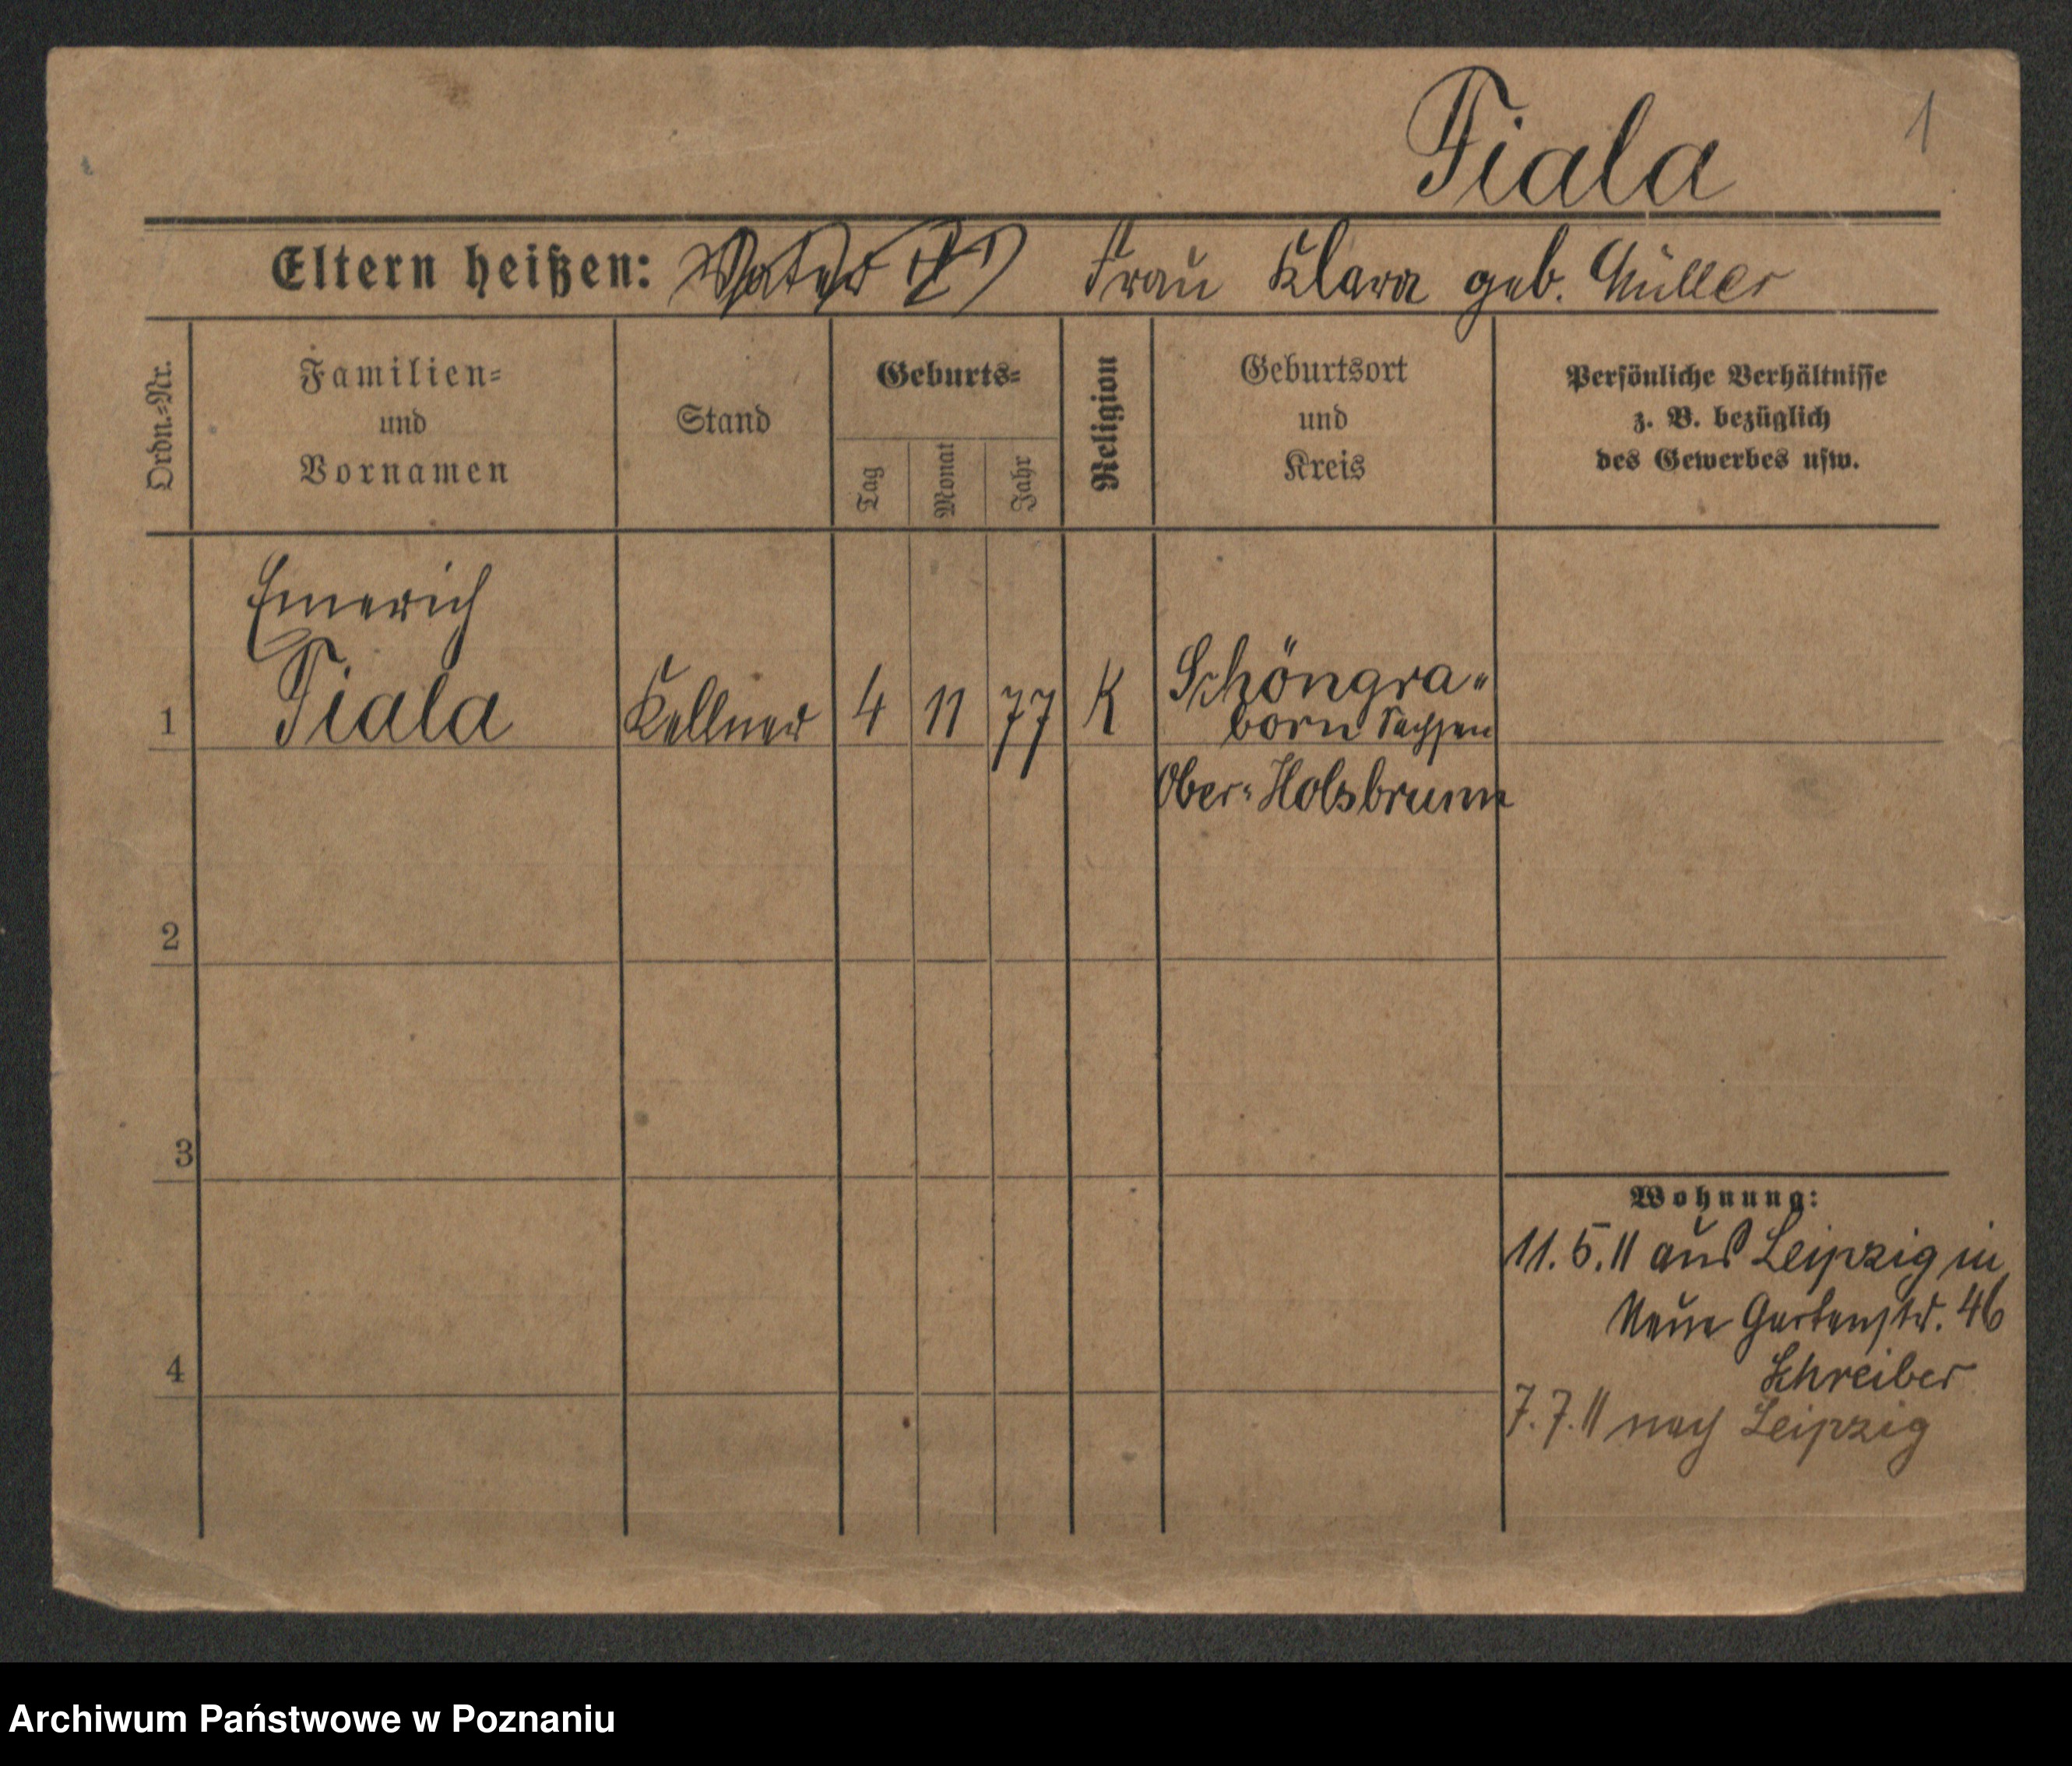 Fiala
1
Eltern heißen: Frau Klara geb. Müller
Ordn.=Nr.
Familien=
und
Vornamen
Stand
Geburts=
Tag
Monat
Jahr
Religion
Geburtsort
und
Kreis
Persönliche Verhältnisse
z. B. bezüglich
des Gewerbes usw.
Emerich
1 Fiala Kellner 4 11 77 K Schöngra=
born Sachsen
Ober=Holsbrunn
2
3
4
Wohnung:
11.5.11 aus Leipzig in
Neue Gartenstr. 46
Schreiber
7.7.11 nach Leipzig
Archiwum Państwowe w Poznaniu